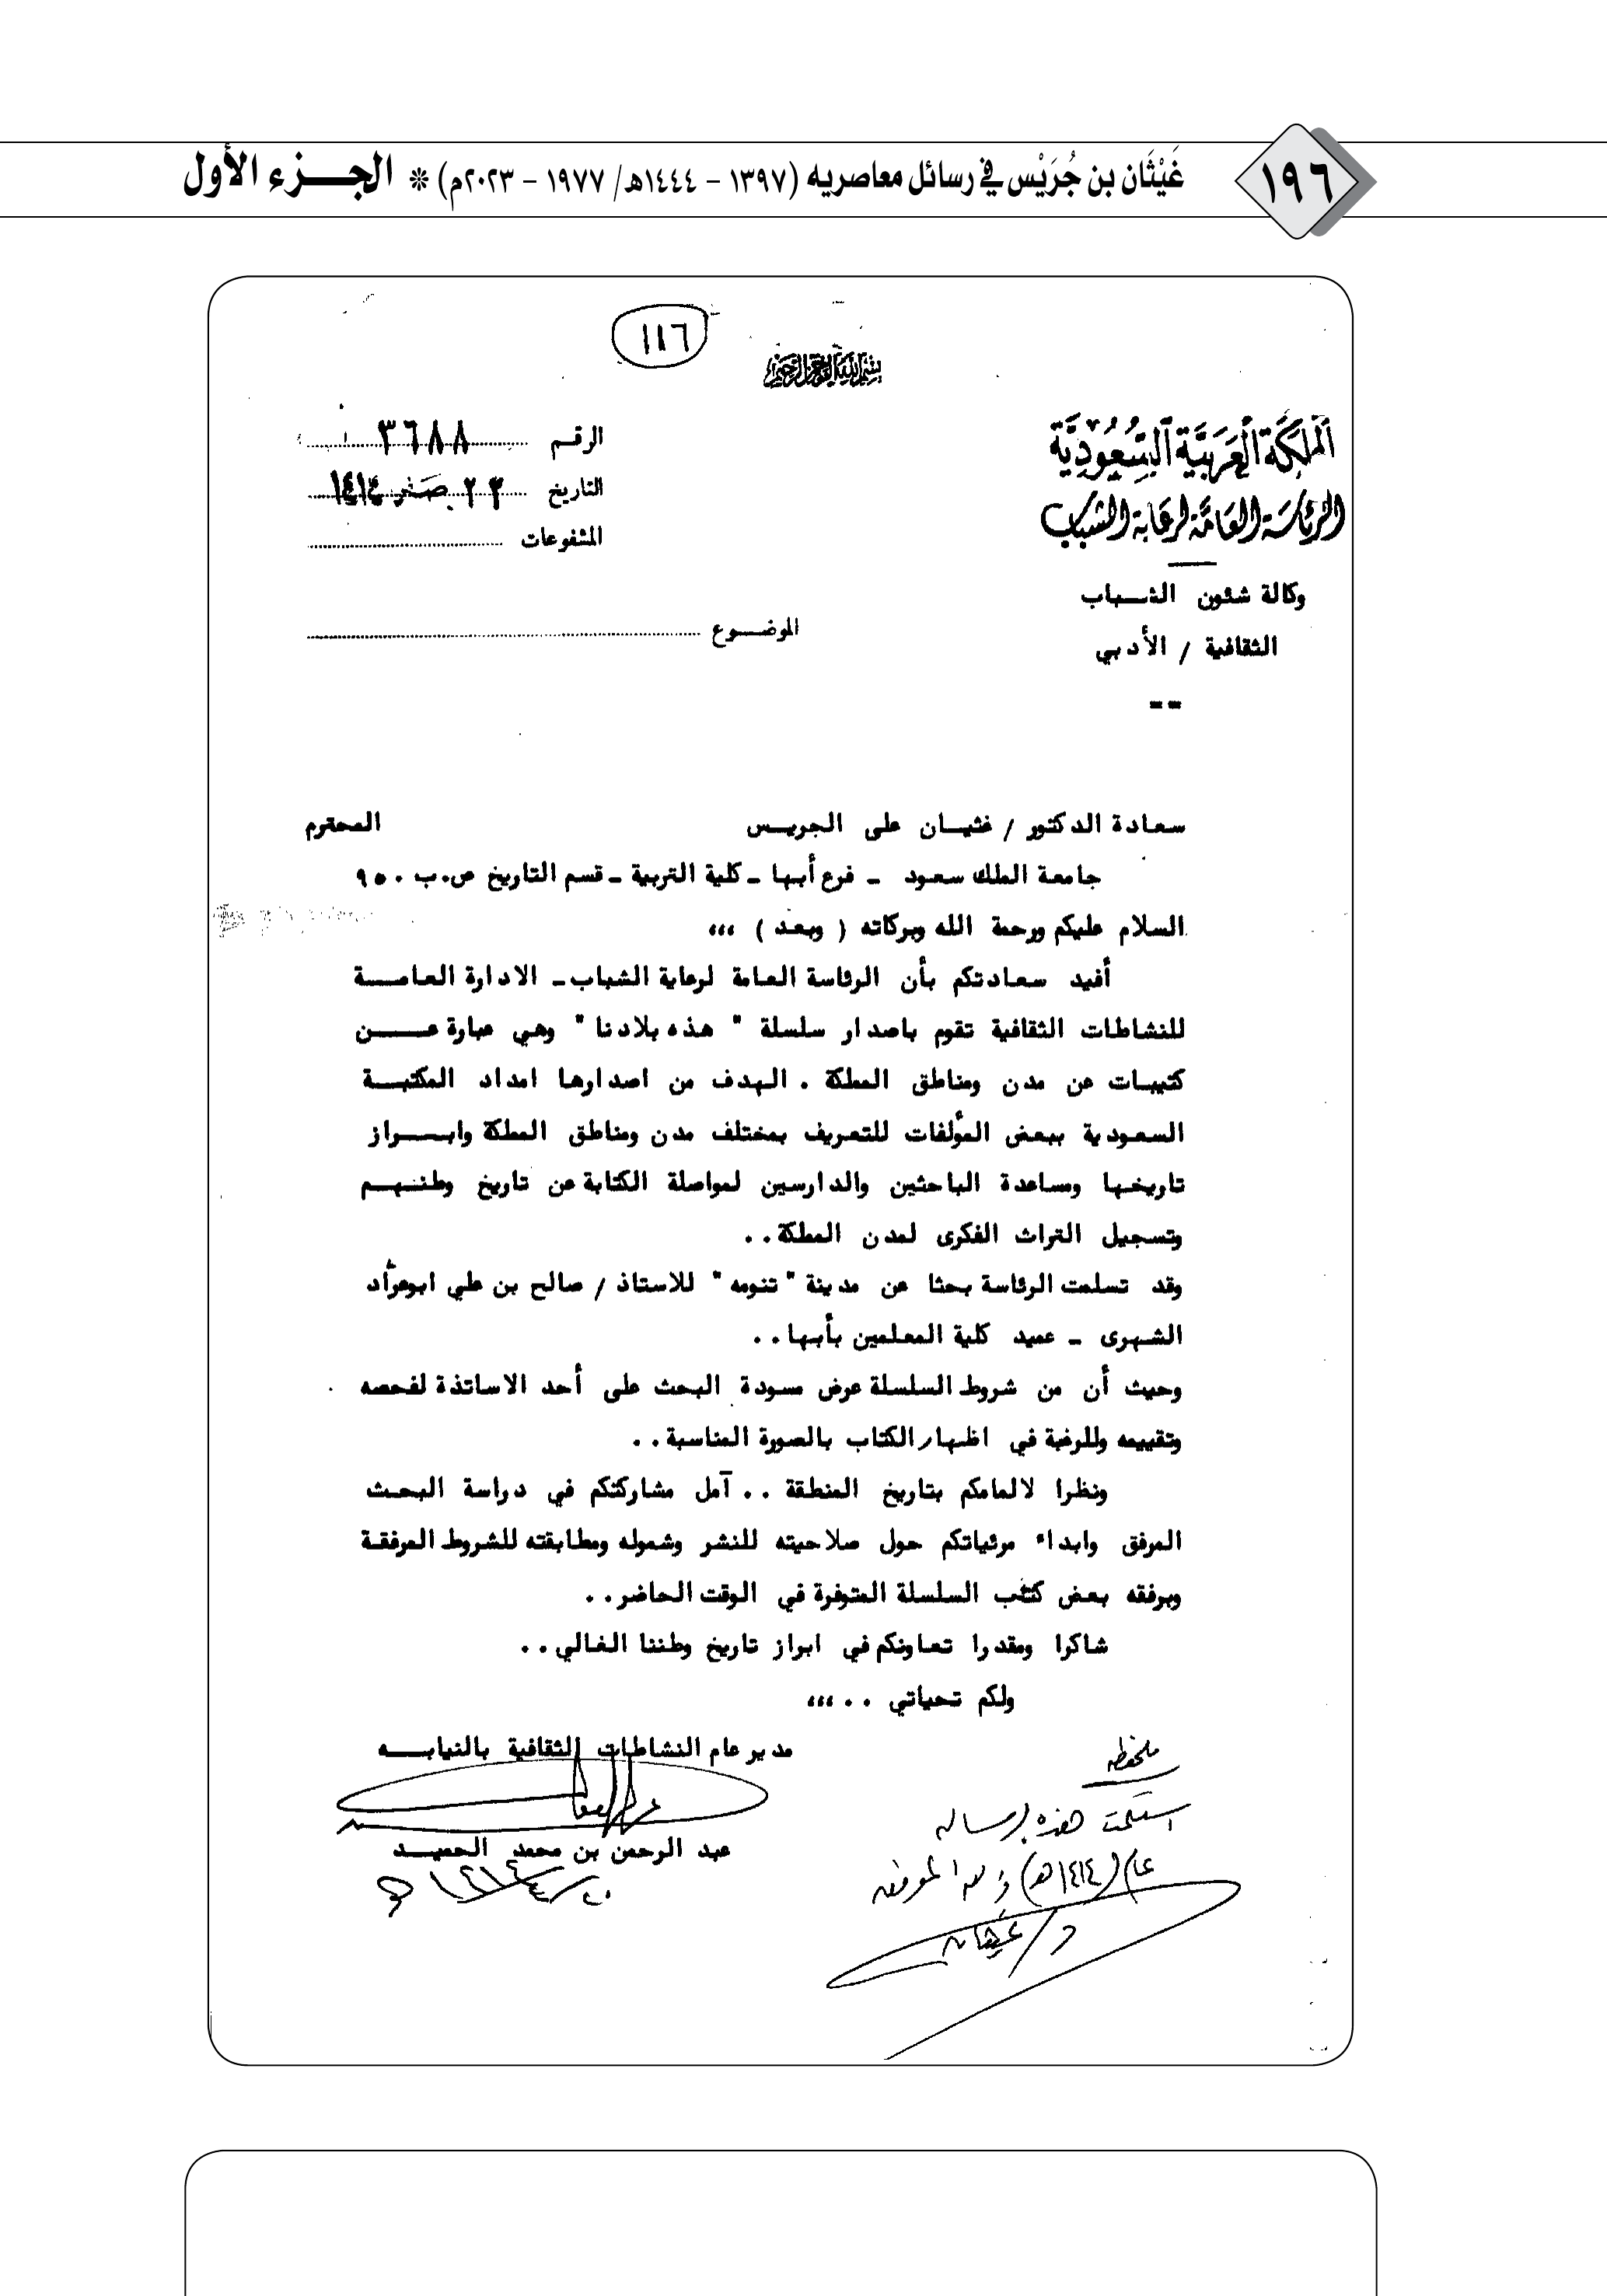 ١٩٦
غَيْثَان بن جُرَيْس في رسائل معاصريه (١٣٩٧ - ١٤٤٤هـ/ ١٩٧٧ - ٢٠٢٣م) * الجـــزء الأول
١١٦
بسم الله الرحمن الرحيم
المملكة العربية السعودية
الرئاسة العامة لرعاية الشباب
وكالة شئون الشباب
الثقافية / الأدبي
الرقم ٣٦٨٨
التاريخ ٢٣ صفر ١٤١٤
المشفوعات
الموضوع
سعادة الدكتور / غثيان على الجريس المحترم
جامعة الملك سعود - فرع أبها - كلية التربية - قسم التاريخ ص.ب ٩٥٠
السلام عليكم ورحمة الله وبركاته ( وبعد ) ،،،
أفيد سعادتكم بأن الرئاسة العامة لرعاية الشباب - الادارة العامة
للنشاطات الثقافية تقوم باصدار سلسلة " هذه بلادنا " وهي عبارة عن
كتيبات عن مدن ومناطق المملكة . الهدف من اصدارها امداد المكتبة
السعودية ببعض المؤلفات للتعريف بمختلف مدن ومناطق المملكة وابراز
تاريخها ومساعدة الباحثين والدارسين لمواصلة الكتابة عن تاريخ وطنهم
وتسجيل التراث الفكرى لمدن المملكة ..
وقد تسلمت الرئاسة بحثا عن مدينة " تنومه " للاستاذ / صالح بن علي ابوعرَّاد
الشهرى - عميد كلية المعلمين بأبها ..
وحيث أن من شروط السلسلة عرض مسودة البحث على أحد الاساتذة لفحصه
وتقييمه وللرغبة في اظهار الكتاب بالصورة المناسبة ..
ونظرا لالمامكم بتاريخ المنطقة .. آمل مشاركتكم في دراسة البحث
المرفق وابداء مرئياتكم حول صلاحيته للنشر وشموله ومطابقته للشروط المرفقة
وبرفقه بعض كتب السلسلة المتوفرة في الوقت الحاضر ..
شاكرا ومقدرا تعاونكم في ابراز تاريخ وطننا الغالي ..
ولكم تحياتي .. ،،،
مدير عام النشاطات الثقافية بالنيابه
عبد الرحمن بن محمد الحميد
ملحوظه
استلمت هذه الرساله
عام (١٤١٤هـ) والله الموفق
د/ غيثان